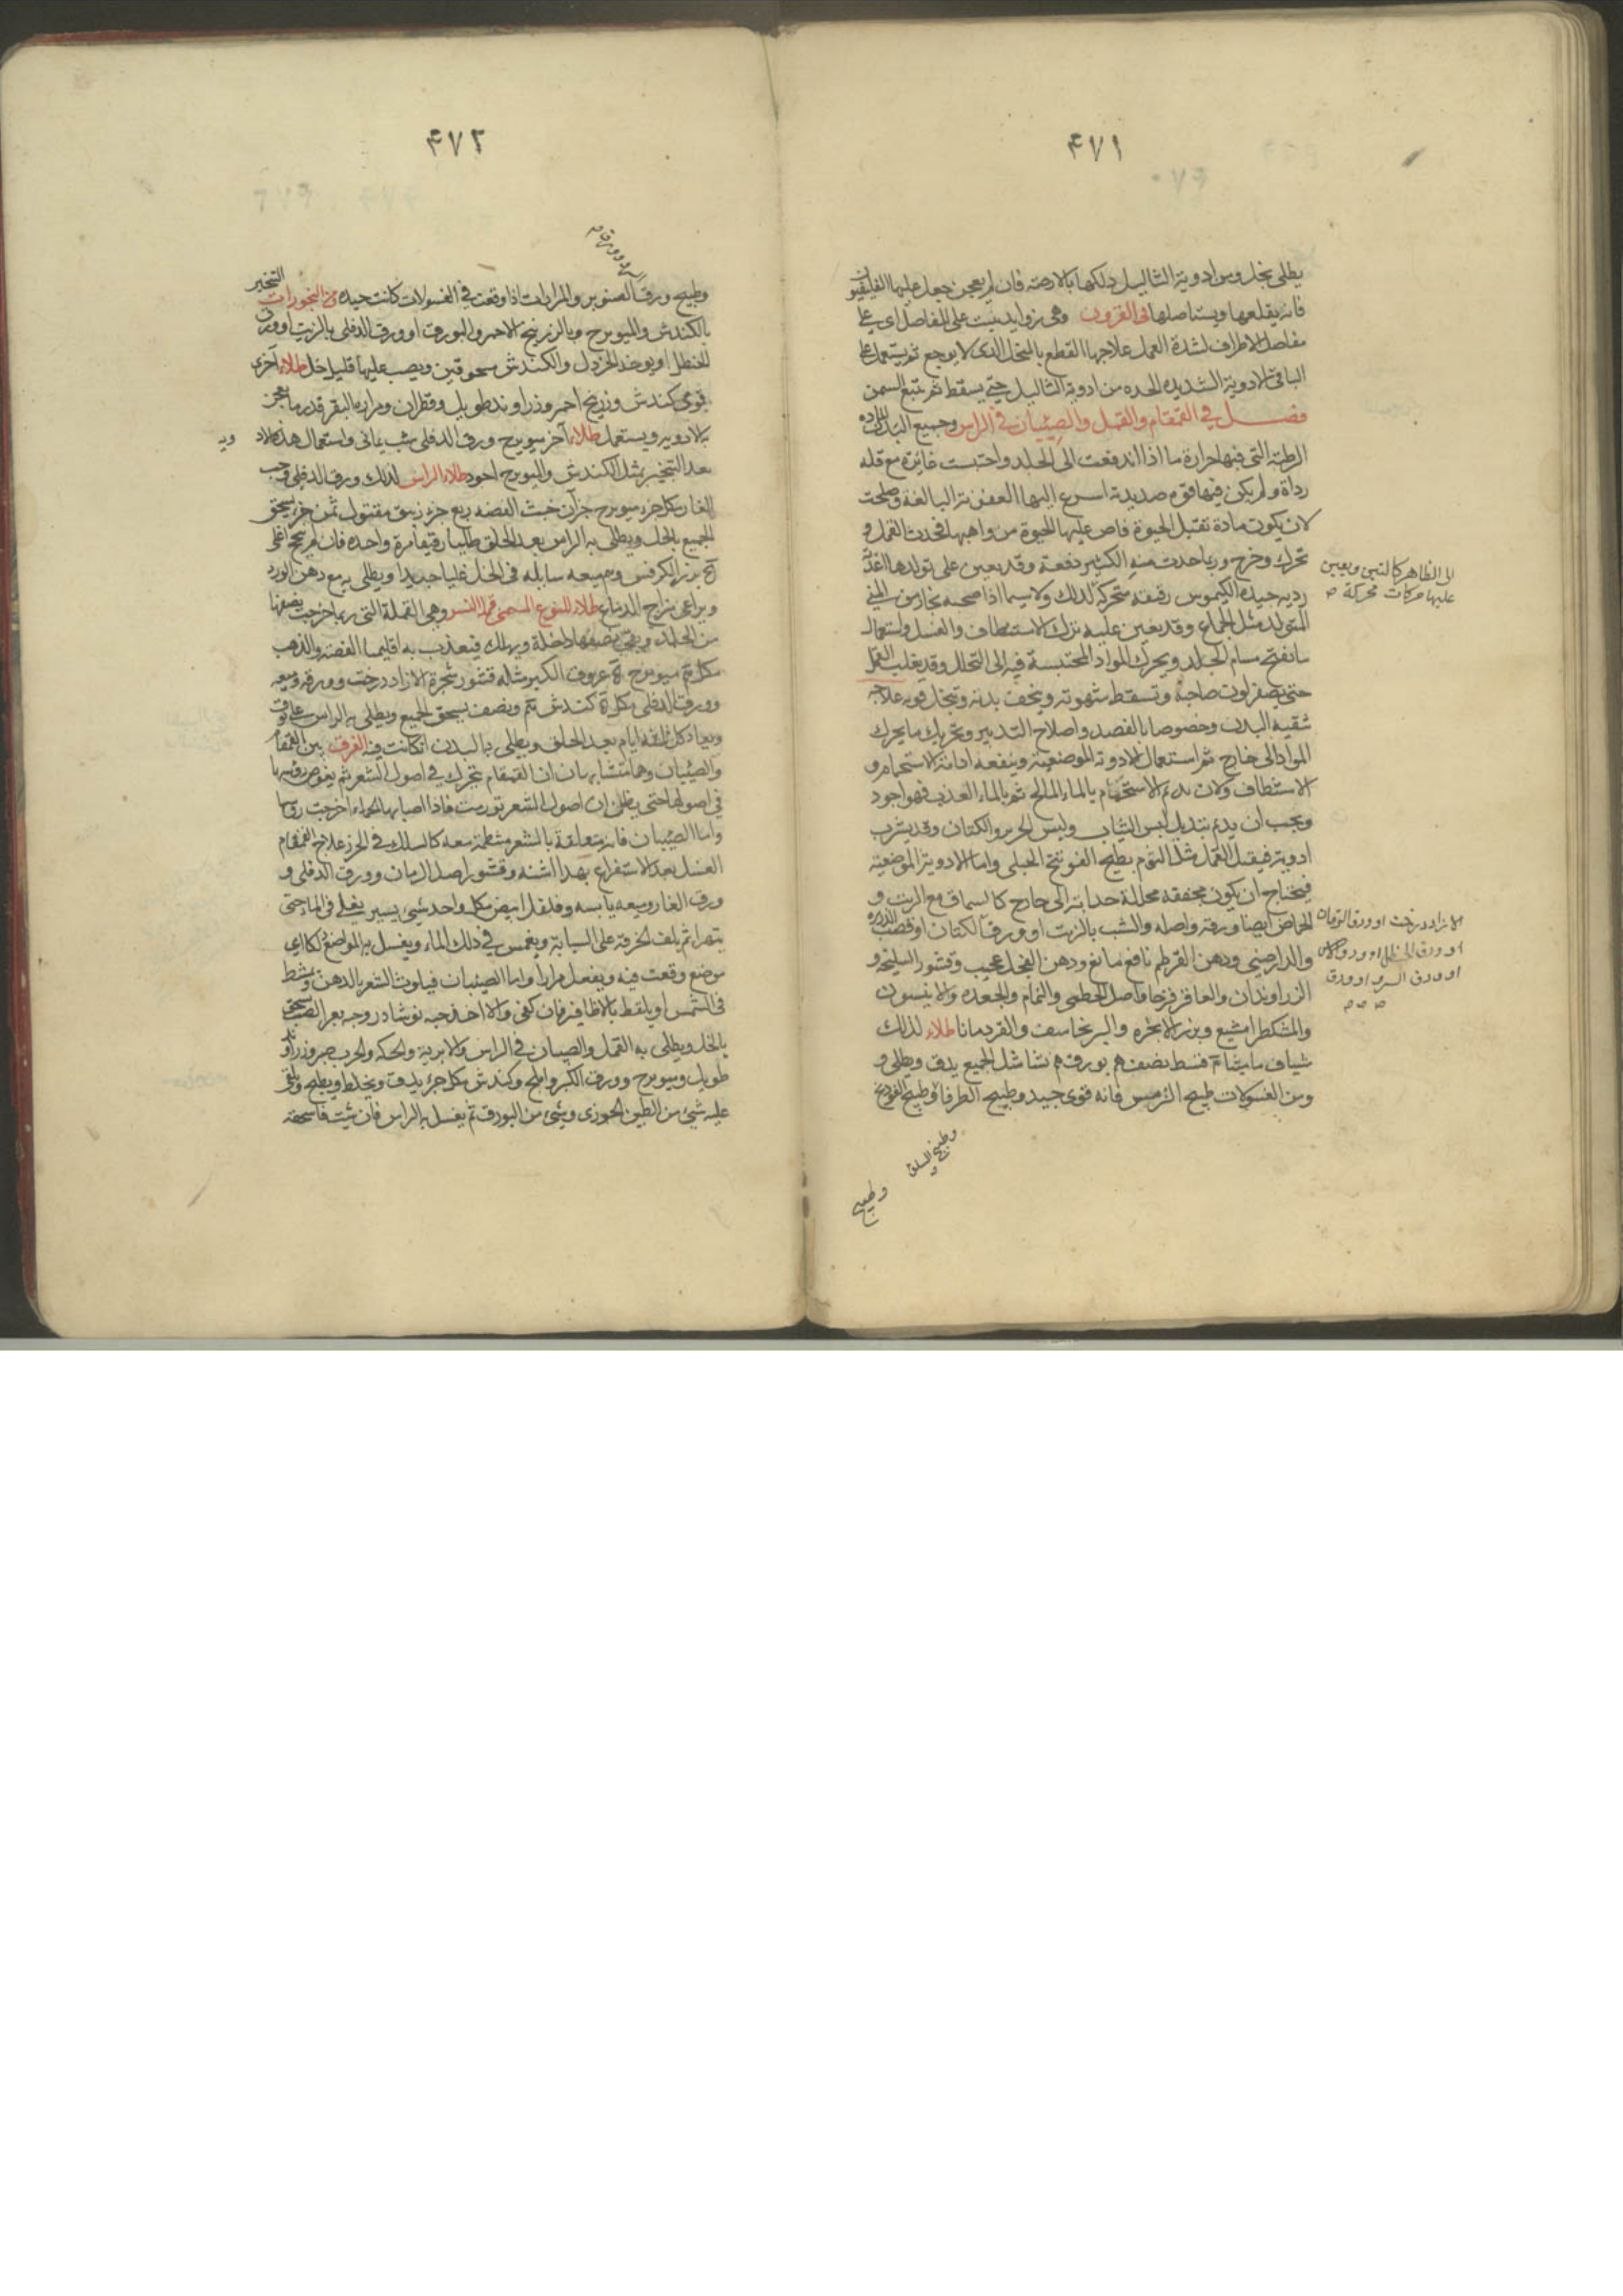 ۴۷۱
يطلى بخل ومن ادوية الثاليل دلكها بالادهنه فان لم يعجن جعل عليها القلقيون
فانه يقلعها ويستاصلها فى القرون وهى زوايد تنبت على المفاصل اى على
مفاصل الاطراف لشدة العمل علاجها القطع بالمنخل الذى لا يوجع ثم يستعمل على
الباقى الادوية الشديده الحده من ادوية الثاليل حتى يسقط ثم تتبع السمن
فصل في القمقام والقمل والصئبان فى الراس وجميع البدن المادة
الرطبة التى فيها حرارة ما اذا اندفعت الى الجلد واحتبست غايرة مع قلة
رداة ولم يكن فيها قوم صديدية اسرع اليها العفونة البالغة وصلحت
لان يكون مادة تقبل الحيوة فاض عليها الحيوة من واهبها فحدث القمل و
تحرك وخرج وربما حدث منه الكثير دفعة وقد يعين على تولدها اغذية
ردية جيدة الكيموس رقيقه متحركة لذلك ولا سيما اذا صحبه بخار من المنى
المتولد مثل الجماع وقد يعين عليه ترك الاستنظاف والغسل واستعمال
ما يفتح مسام الجلد ويحرك المواد المحتبسة فيه الى التحلل وقد يغلب القمل
حتى يصفر لون صاحبه وتسقط شهوته وينحف بدنه وتنحل قوته علاجه
تنقية البدن وخصوصا بالفصد واصلاح التدبير وتحريك ما يحرك
المواد الى خارج ثم استعمال الادوية الموضعية وينفعه ادامة الاستحمام و
الاستنظاف وكان يديم الاستحمام بالماء المالح ثم بالماء العذب فهو اجود
ويجب ان يديم تبديل لبس الثياب ولبس الحرير والكتان وقد يشرب
ادوية فيقتل القمل مثل الثوم بطبيخ الفوتنج الجبلى واما الادوية الموضعية
فيحتاج ان يكون مجففة محللة جذابة الى خارج كالسماق مع الزيت و
الحماض ايضا ورقه واصله والشب بالزيت او ورق الكتان او قصب الذريره
والدارصينى ودهن القرطم نافع مانع ودهن الفجل عجيب وقشور السليخه و
الزراوندان والعاقرقرحا واصل الخطمى والنمام والجعده والانيسون
والمشكطرامشيع وبزر الانجره والبرنجاسف والقردمانا طلاء لذلك
شياف مايشا قسط نصف بورق نشا مثل الجميع يدق ويطلى و
ومن الغسولات طبيخ الترمس فانه قوى جيد وطبيخ الطرفا وطبيخ الفودنج
الى الظاهر كالتبين ويعين
عليها حركات محركة ص
الازاد درخت او ورق الرمان
او ورق الحنظل
او ورق السرو او ورق
وطبيخ السلق
وطبيخ
۴۷۲
وطبيخ ورق الصنوبر والمرارات اذا وقعت فى الغسولات كانت جيده فى البخورات التبخير
بالكندش والميويزج وبالزرنيخ الاحمر والبورق او ورق الدفلى بالزيت او ورق
الحنظل او يوخذ الخردل والكندش مسحوقين ويصب عليها قليل خل طلاء اخرى
قوى كندش وزرنيخ احمر وزراوند طويل وقطران ومرارة البقر قدر ما يعجن
به الادويه ويستعمل طلاء آخر ميويزج ورق الدفلى شب يمانى واستعمال هذه الاد
ويه
بعد التبخير بمثل الكندش والميويزج اجود طلاء الراس لذلك ورق الدفلى وحب
الغار كل جزء ميويزج جزآن خبث الفضه ربع جزء زيبق مقتول ثمن جزء يسحق
الجميع بالخل ويطلى به الراس بعد الحلق طليا رقيقا مرة واحده فان لم ينجح اغلى
بزر الكرفس وميعه سايله فى الخل غليا جيدا ويطلى به مع دهن الورد
ويراعى مزاج الدماغ طلاء للنوع المسمى قمل النسر وهى القملة التى ربما خرجت بعضها
من الجلد وبقى نصفها داخلة ويهلك فيتعذب به اقليميا الفضة والذهب
ميويزج عروق الكبر مثله قشور شجرة الازاد درخت وورقه وميعه
وورق الدفلى كندش ونصف يسحق الجميع ويطلى به الراس
ويعاد كل ثلثة ايام بعد الحلق ويطلى به البدن ان كانت فيه الفرق بين القمقام
والصئبان وهما متشابهان ان القمقام يتحرك فى اصول الشعر ثم يغوص رؤسها
فى اصولها حتى يظن ان اصول الشعر تورمت فاذا اصابها الحماء اخرجت روسها
واما الصئبان فانه متعلقة بالشعر منظمة معه كالسلك فى الخرز علاج القمقام
الغسل بعد الاستفراغ بهذا اشنه وقشور اصل الرمان وورق الدفلى و
ورق الغار وميعه يابسه وفلفل ابيض مكل واحد شئ يسير يغلى فى الماء حتى
يتهرا ثم يلف الخرقة على السبابة ويغمس فى ذلك الماء ويغسل به المواضع لكل اى
موضع وقعت فيه ويفعل مرارا واما الصئبان فيلوث الشعر بالدهن ويمشط
فى الشمس او يلقط بالاظافير فان كفى والا اخذ حبه نوشادر وحبه بعر الضب يسحق
بالخل ويطلى به القمل والصيبان فى الراس والابرية والحكه والجرب صبر وزراوند
طويل وميويزج وورق الكبر والملح وكندش مكل جزء يدق ويخلط ويطبخ ويلقى
عليه شئ من الطين الخوزى وشئ من البورق ثم يغسل به الراس فان شئت فاسحقه